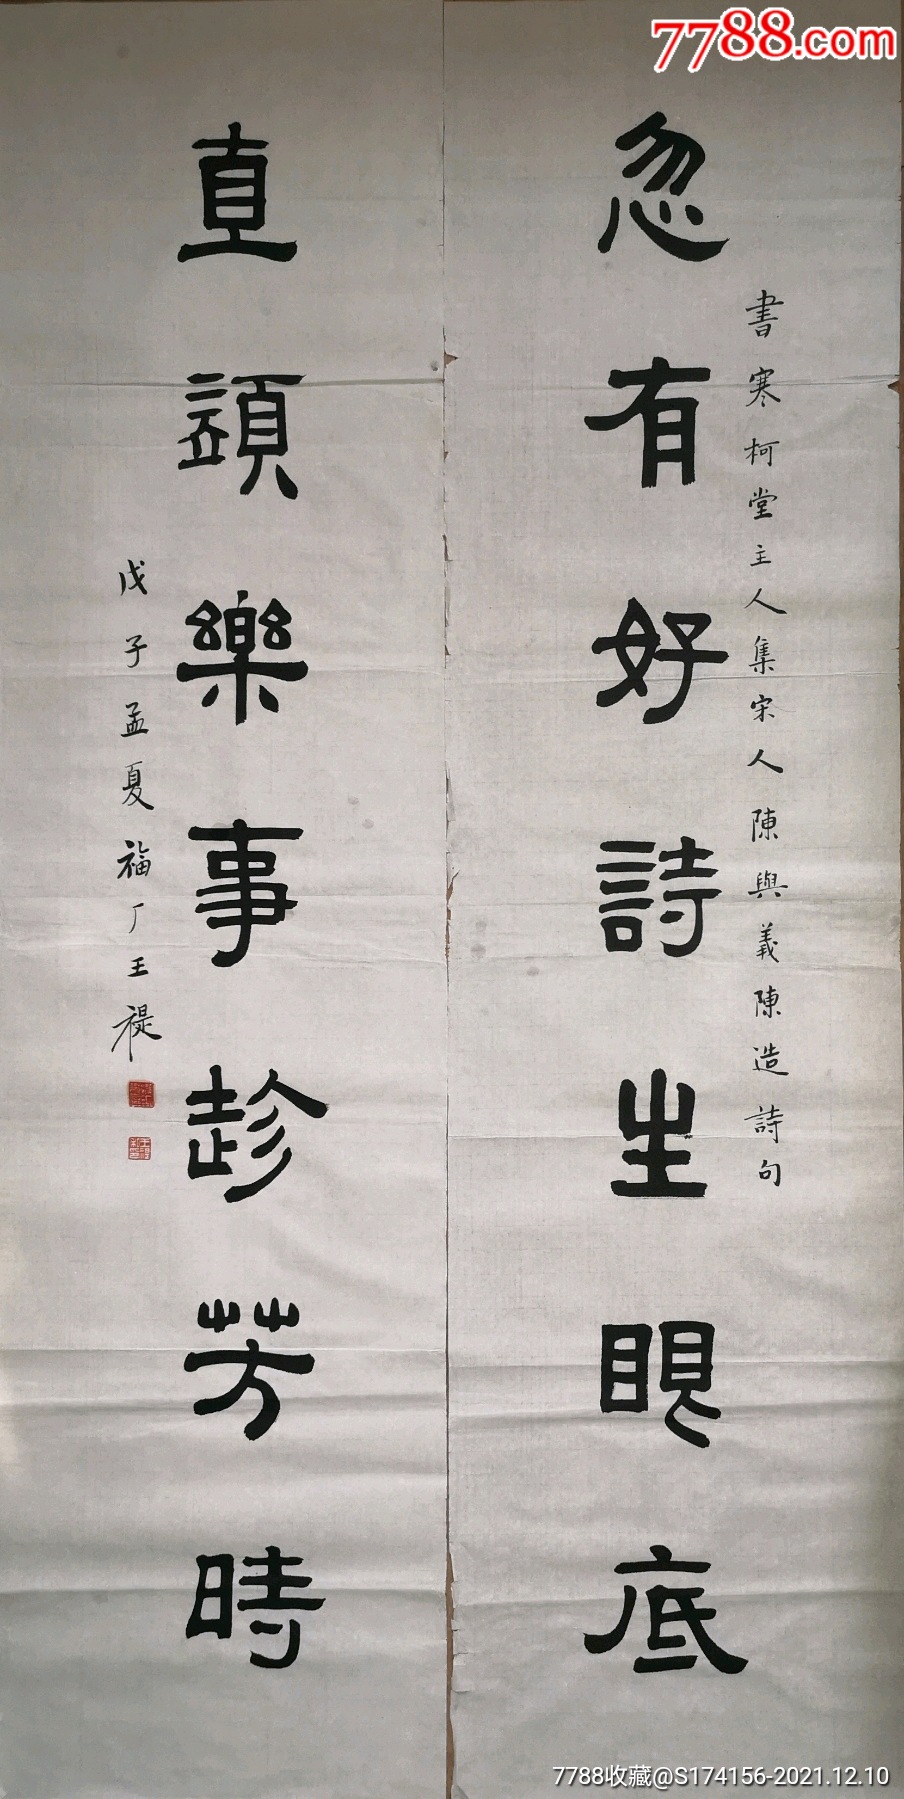 7788.com
忽有好詩生眼底
書寒柯堂主人集宋人陳與義陳造詩句
直須樂事趁芳時
戊子孟夏福厂王禔
7788收藏@S174156-2021.12.10